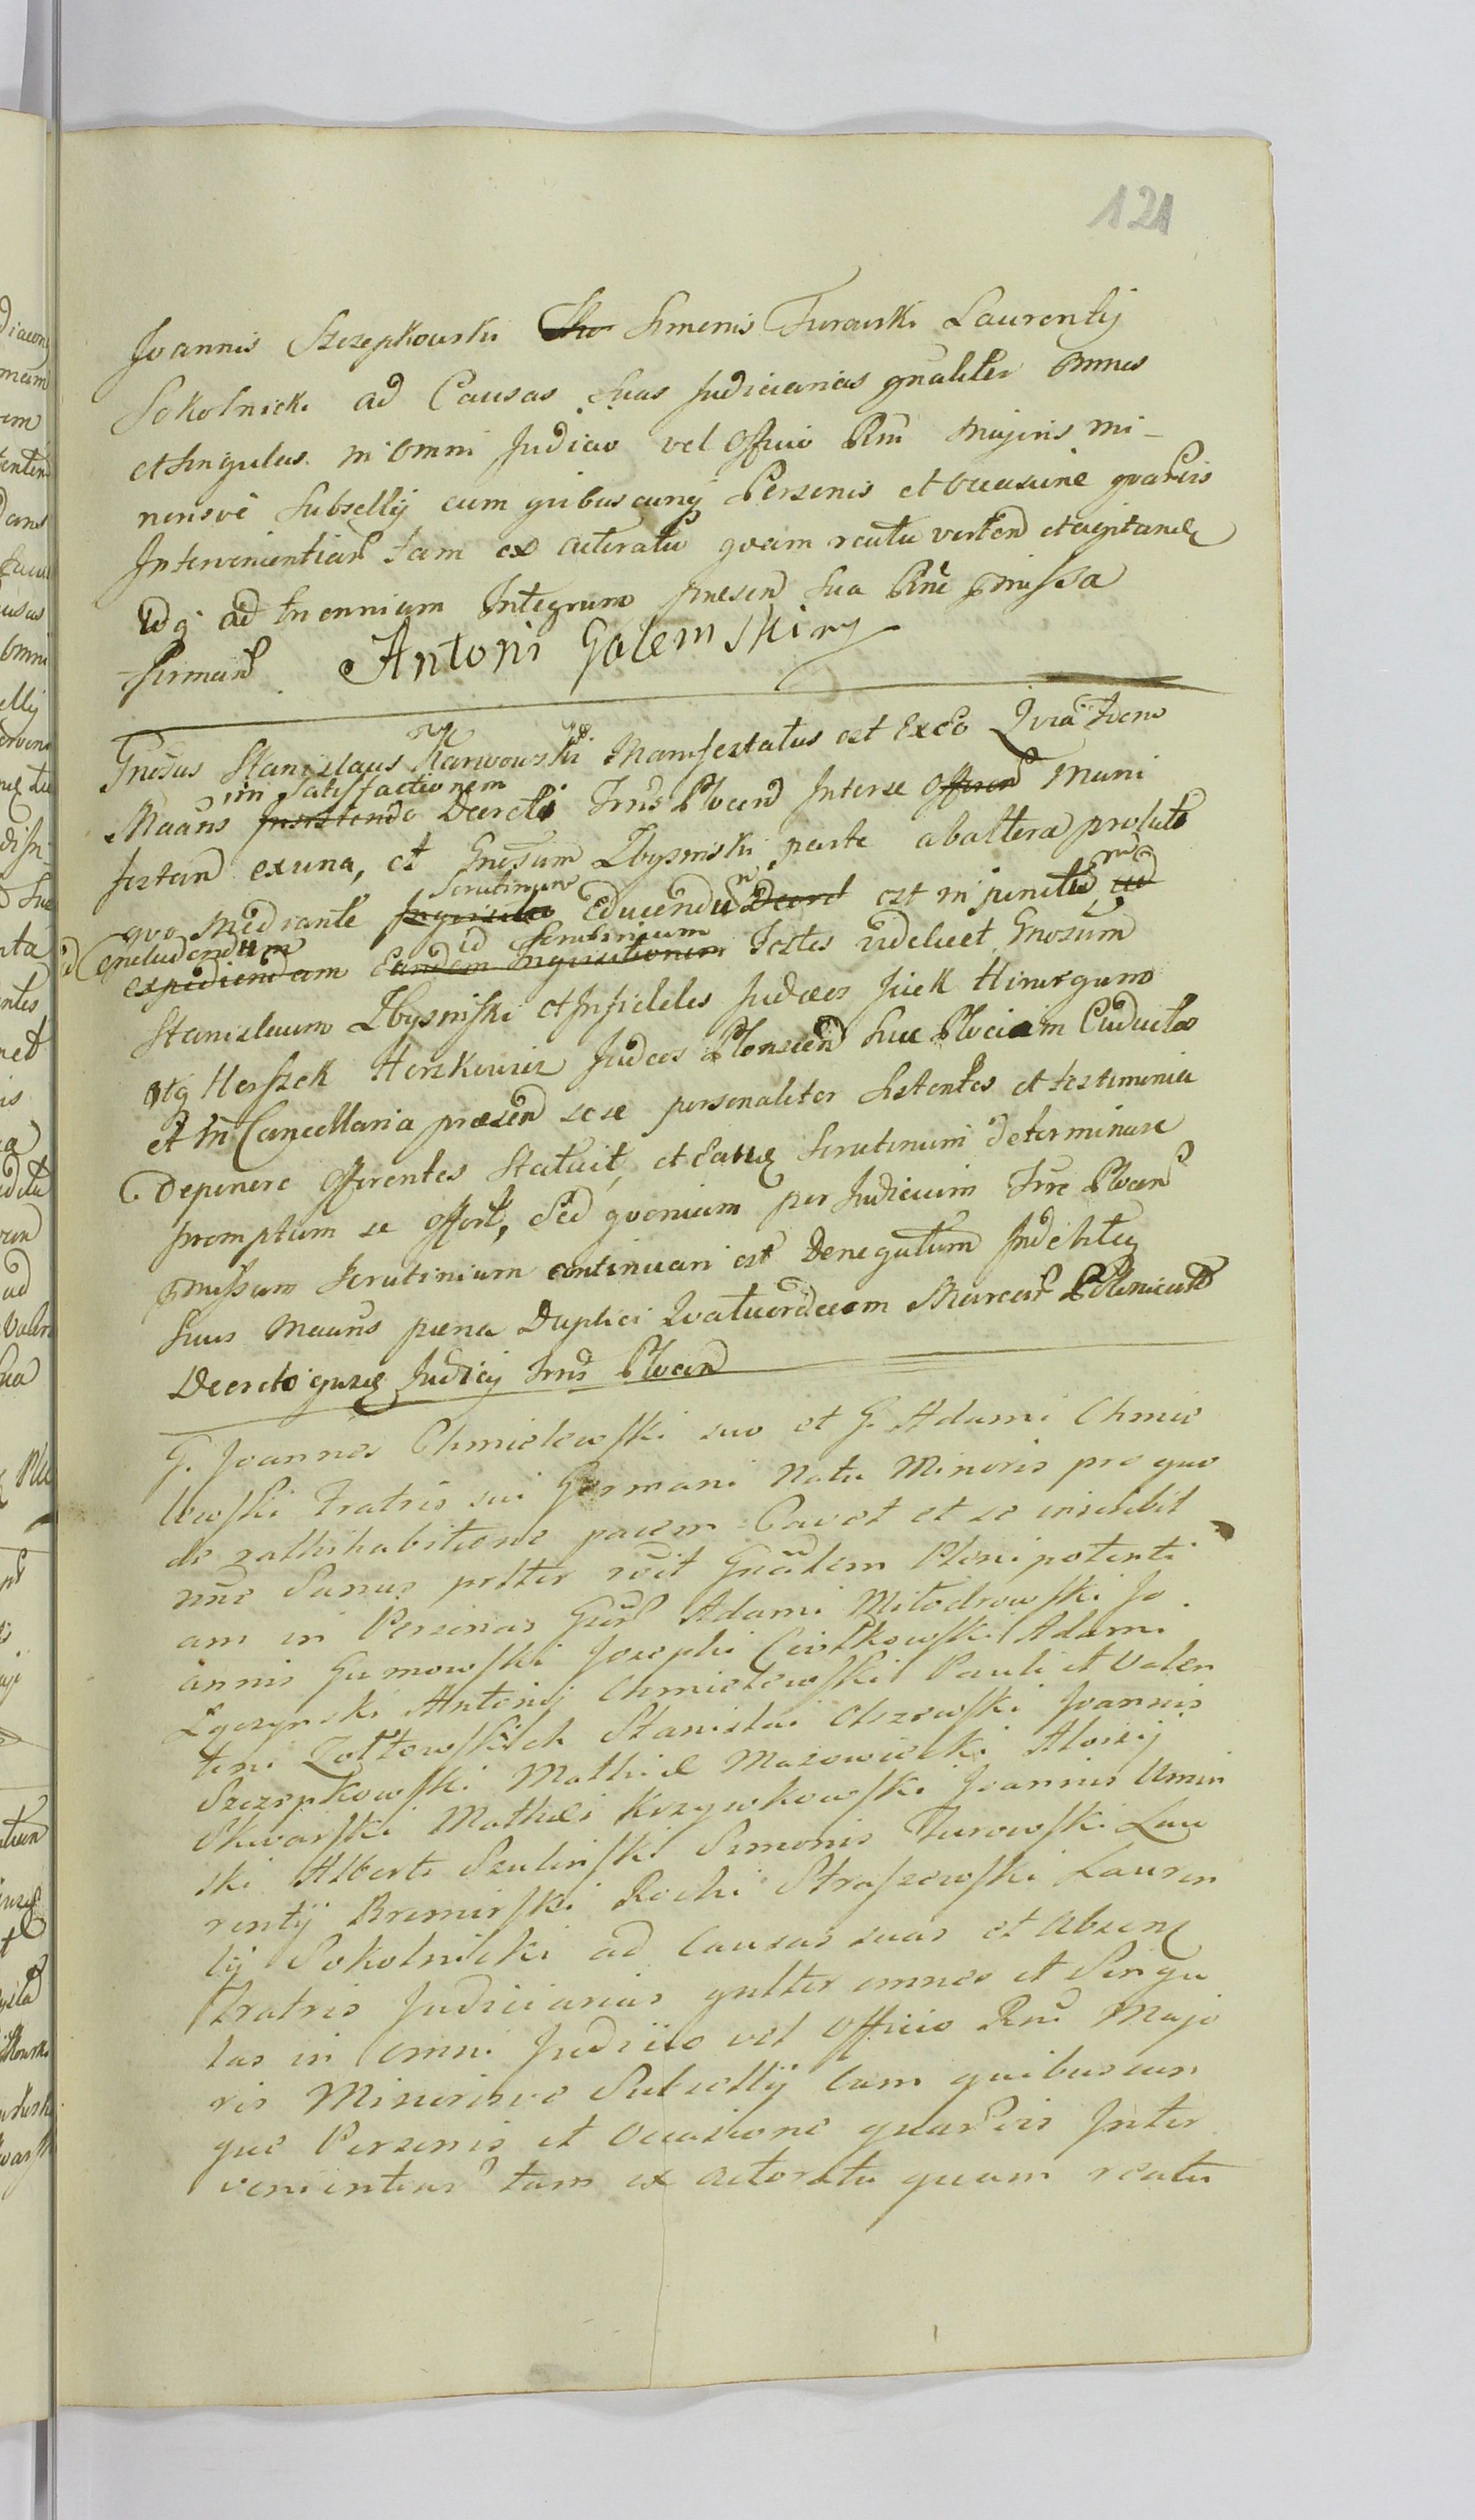 121
Joannis Szczepkowski Simonis Turowski Laurentij
Sokolnicki ad Causas suas Judiciarias gnaliter omnes
et singulas in omni Judicio vel Officio Rni Majoris mi-
norisve Subsellij cum quibuscunq Personis et occasione quavis
Intervenientiar tam ex actoratu quam reatu verten et agitan
idq ad triennium Integrum praesen sua Rne pmissa
firman Antoni Golemski mp
Gnosus Stanislaus Karwowski Manifestatus est ex eo Quia Idem
in Satisfactionem
Maans Insistendo Decreti Trris Plocen Inter se Offeren Mani
festan ex una, et Gnosum Zbysinski parte ab altera prolato
Scrutinium
quo Mediante Inquisitio Educendu Decret est injunctu ad
Concludendum id Scrutinium
expediendam Eandem Inquisitionem Testes videlicet Gnosum
Stanislaum Zbysinski et Infideles Judaeos Jcek Hirurgum
atq Herszek Herszkowicz Judaeos Plonscen huc Plociam Conductos
et in Cancellaria praesen sese personaliter sistentes et testimonia
Deponere offerentes Statuit, et Scrutinium determinare
promptum se offert, Sed quoniam per Judicium Trre Plocen
pmissum Scrutinium continuari est Denegatum Ideo
suus Maans paena Duplici Quatuordecim Marcar Polonicalium
Decreto Judicij Trris Plocen
G. Joannes Chmielewski suo et G. Adami Chmie
lewski Fratris sui Germani Natu Minoris pro quo
de rathihabitione pacem Cavet et se inscribit
nne Sanus pstter rcit Gnalem Plenipotenti
am in Personas Gnor Adami Mitodrowski Jo
annis Gumowski Josephi Ciołkowski Adami
Łączynski Antonij Chmielewski Pauli et Valen
tini Zołtowskich Stanislai Olszewski Joannis
Szczepkowski Mathiae Mazowiecki Aloisij
Skwarski Mathaei Krzywkowski Joannis Umin
ski Alberti Szulinski Simonis Turowski Lau
rentij Breminski Rochi Straszewski Lauren
tij Sokolnicki ad Causas suas et Absen
Fratris Judiciarias gnltter omnes et Singu
las in omni Judicio vel Officio Rni Majo
ris Minorisve Subsellij Cum quibuscun
que Personis et Occasione quavis Inter
venientiar tam ex actoratu quam reatu